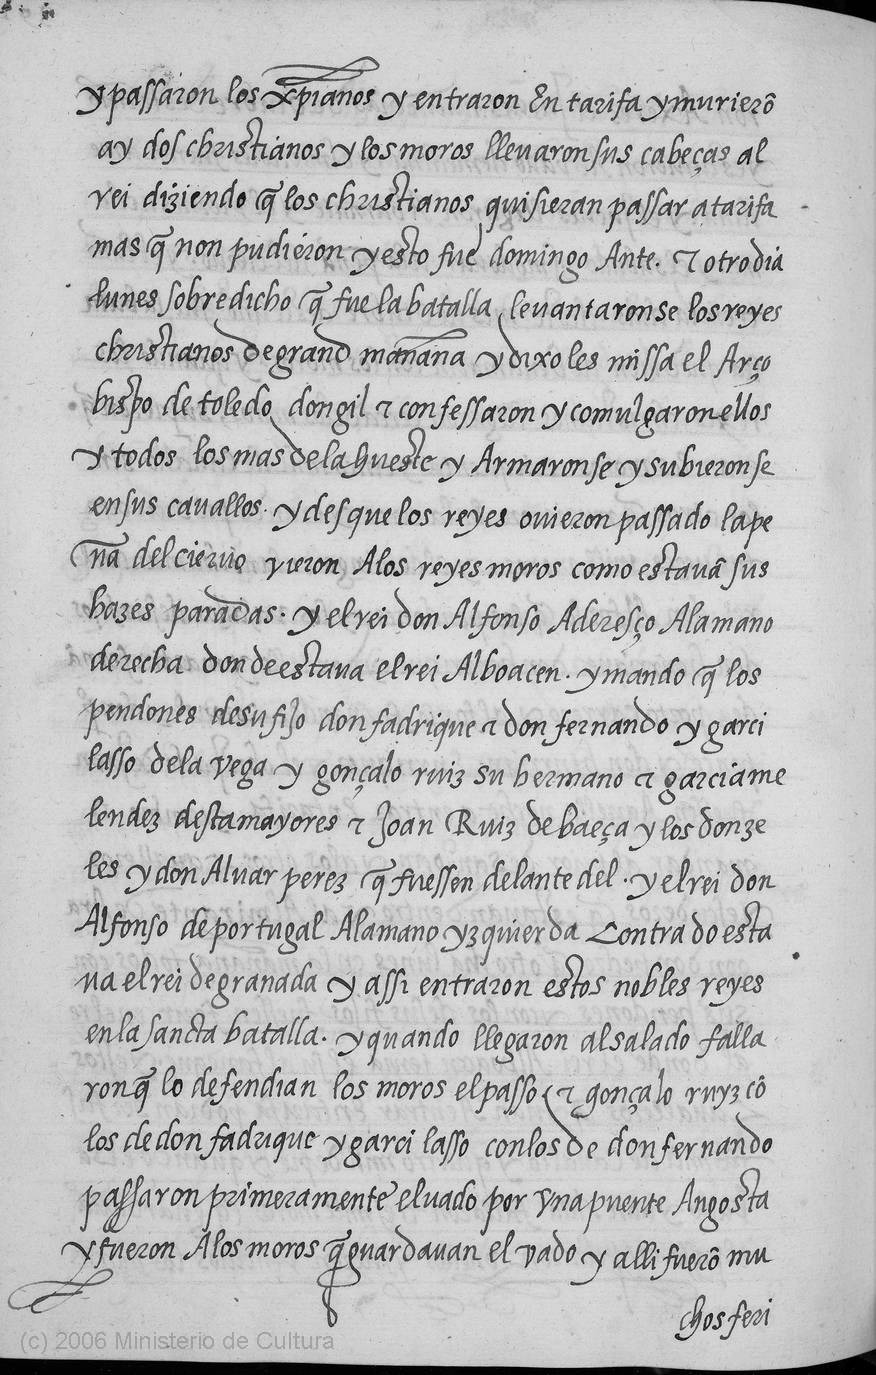 y passaron los xp̃ianos y entraron En tarifa y murierõ
ay dos christianos y los moros lleuaron sus cabeças al
rei diziendo q̃ los christianos quisieran passar a tarifa
mas q̃ non pudieron y esto fue domingo Ante. τ otro dia
lunes sobredicho q̃ fue la batalla levantaronse los reyes
christianos de grand mañana y dixoles missa el Arço
bispo de toledo don gil τ confessaron y comulgaron ellos
y todos los mas de la hueste y Armaronse y subieronse
en sus cauallos. y desque los reyes ouieron passado la pe
ña del cieruo vieron A los reyes moros como estauã sus
hazes paradas. y el rei don Alfonso Aderesço A la mano
derecha donde estaua el rei Alboacen. y mando q̃ los
pendones de su fijo don fadrique τ don fernando y garci
lasso de la vega y gonçalo ruiz su hermano τ garcia me
lendez destamayores τ Joan Ruiz de baeça y los donze
les y don Aluar perez q̃ fuessen delante del. y el rei don
Alfonso de portugal A la mano yzquierda Contra do esta
ua el rei de granada y assi entraron estos nobles reyes
en la sancta batalla. y quando llegaron al salado falla
ron q̃ lo defendian los moros el passo τ gonçalo ruyz cõ
los de don fadrique y garci lasso con los de don fernando
passaron primeramente el uado por vna puente Angosta
y fueron A los moros q̃ guardauan el vado y alli fuerõ mu
chos feri
(c) 2006 Ministerio de Cultura